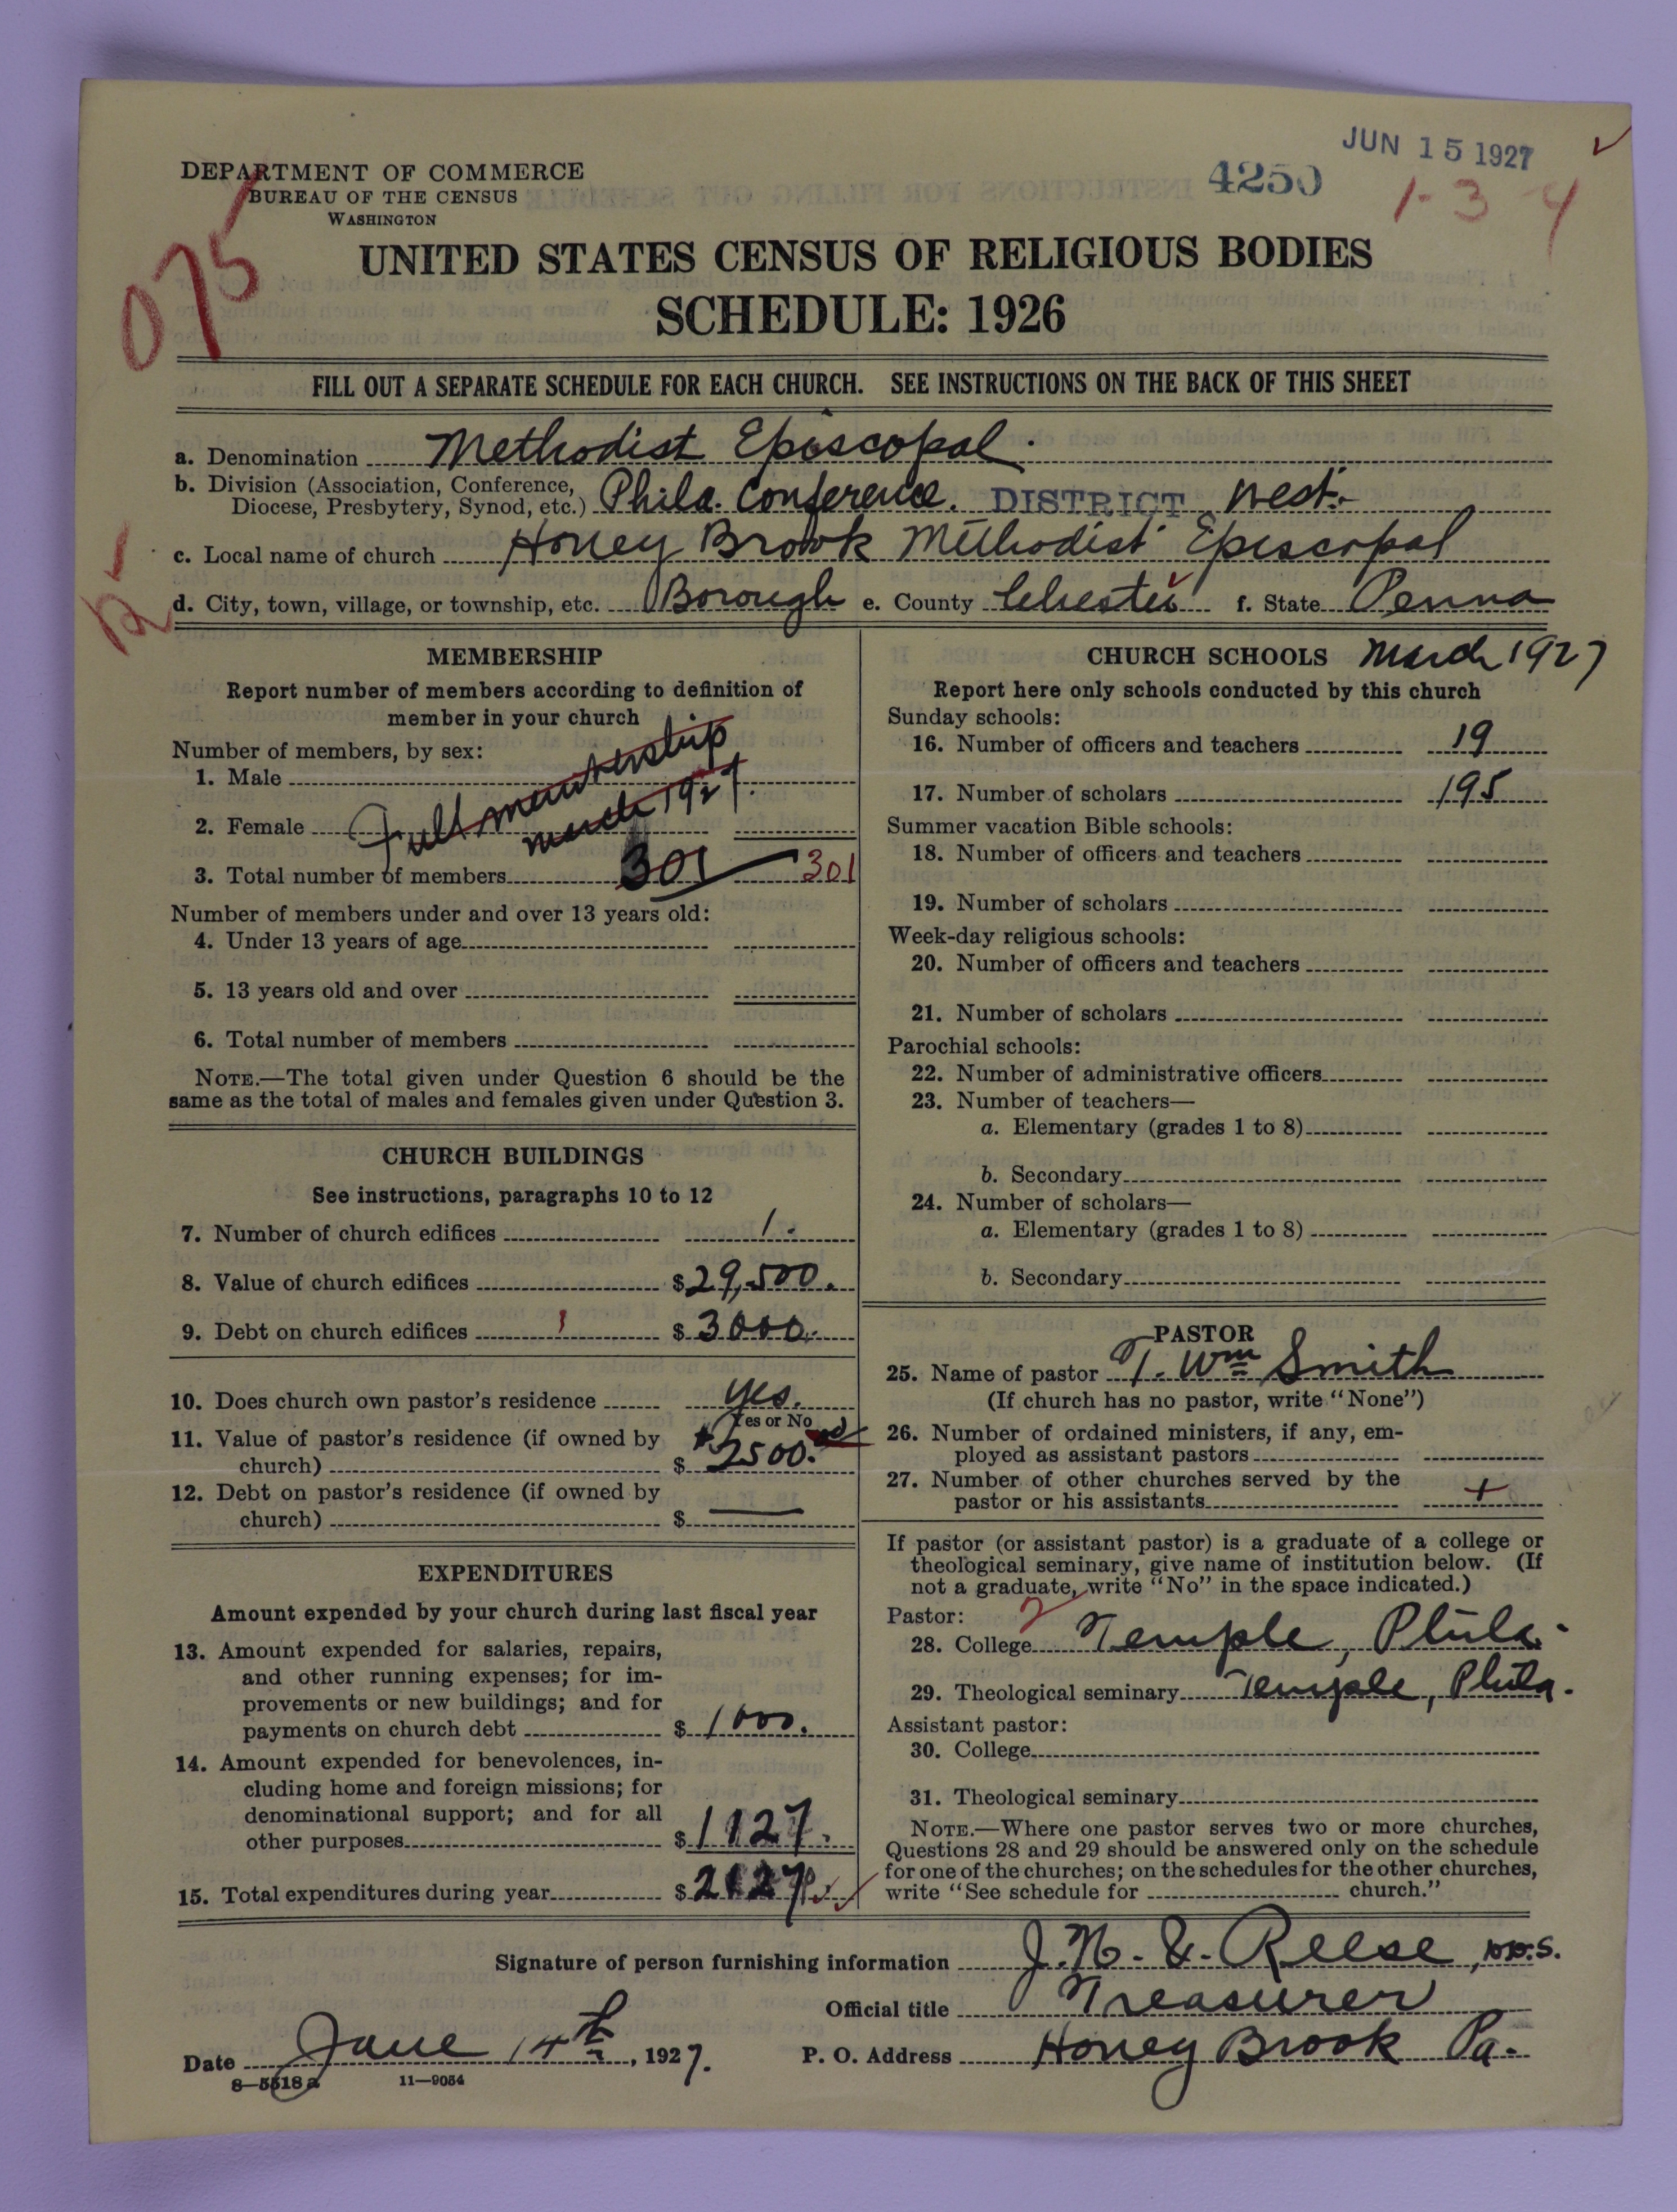 JUN 15 1927
4250
1-3-4
DEPARTMENT OF COMMERCE
BUREAU OF THE CENSUS
WASHINGTON
075
UNITED STATES CENSUS OF RELIGIOUS BODIES
SCHEDULE: 1926
FILL OUT A SEPARATE SCHEDULE FOR EACH CHURCH. SEE INSTRUCTIONS ON THE BACK OF THIS SHEET
a. Denomination Methodist Episcopal.
b. Division (Association, Conference, Diocese, Presbytery, Synod, etc.) Phila. Conference. DISTRICT West.
c. Local name of church Honey Brook Methodist Episcopal
d. City, town, village, or township, etc. Borough e. County Chester f. State Penna
MEMBERSHIP
Report number of members according to definition of
member in your church
Number of members, by sex:
1. Male
Full membership
march 1927.
2. Female
3. Total number of members 301 301
Number of members under and over 13 years old:
4. Under 13 years of age
5. 13 years old and over
6. Total number of members
NOTE.—The total given under Question 6 should be the
same as the total of males and females given under Question 3.
CHURCH BUILDINGS
See instructions, paragraphs 10 to 12
7. Number of church edifices 1.
8. Value of church edifices $29,500.
9. Debt on church edifices $3000.
10. Does church own pastor's residence yes.
Yes or No
11. Value of pastor's residence (if owned by
church) $2500.
12. Debt on pastor's residence (if owned by
church) $ —
EXPENDITURES
Amount expended by your church during last fiscal year
13. Amount expended for salaries, repairs,
and other running expenses; for im-
provements or new buildings; and for
payments on church debt $1000.
14. Amount expended for benevolences, in-
cluding home and foreign missions; for
denominational support; and for all
other purposes $1127.
15. Total expenditures during year $2127
CHURCH SCHOOLS March 1927
Report here only schools conducted by this church
Sunday schools:
16. Number of officers and teachers 19
17. Number of scholars 195
Summer vacation Bible schools:
18. Number of officers and teachers
19. Number of scholars
Week-day religious schools:
20. Number of officers and teachers
21. Number of scholars
Parochial schools:
22. Number of administrative officers
23. Number of teachers—
a. Elementary (grades 1 to 8)
b. Secondary
24. Number of scholars—
a. Elementary (grades 1 to 8)
b. Secondary
PASTOR
25. Name of pastor T. Wm Smith
(If church has no pastor, write "None")
26. Number of ordained ministers, if any, em-
ployed as assistant pastors
27. Number of other churches served by the
pastor or his assistants +
If pastor (or assistant pastor) is a graduate of a college or
theological seminary, give name of institution below. (If
not a graduate, write "No" in the space indicated.)
Pastor: 2
28. College Temple, Phila.
29. Theological seminary Temple, Phila.
Assistant pastor:
30. College
31. Theological seminary
NOTE.—Where one pastor serves two or more churches,
Questions 28 and 29 should be answered only on the schedule
for one of the churches; on the schedules for the other churches,
write "See schedule for church."
Signature of person furnishing information J. N. E. Reese, D.D.S.
Official title Treasurer
Date June 14th, 1927. P. O. Address Honey Brook Pa.
8—5518 a 11—9054